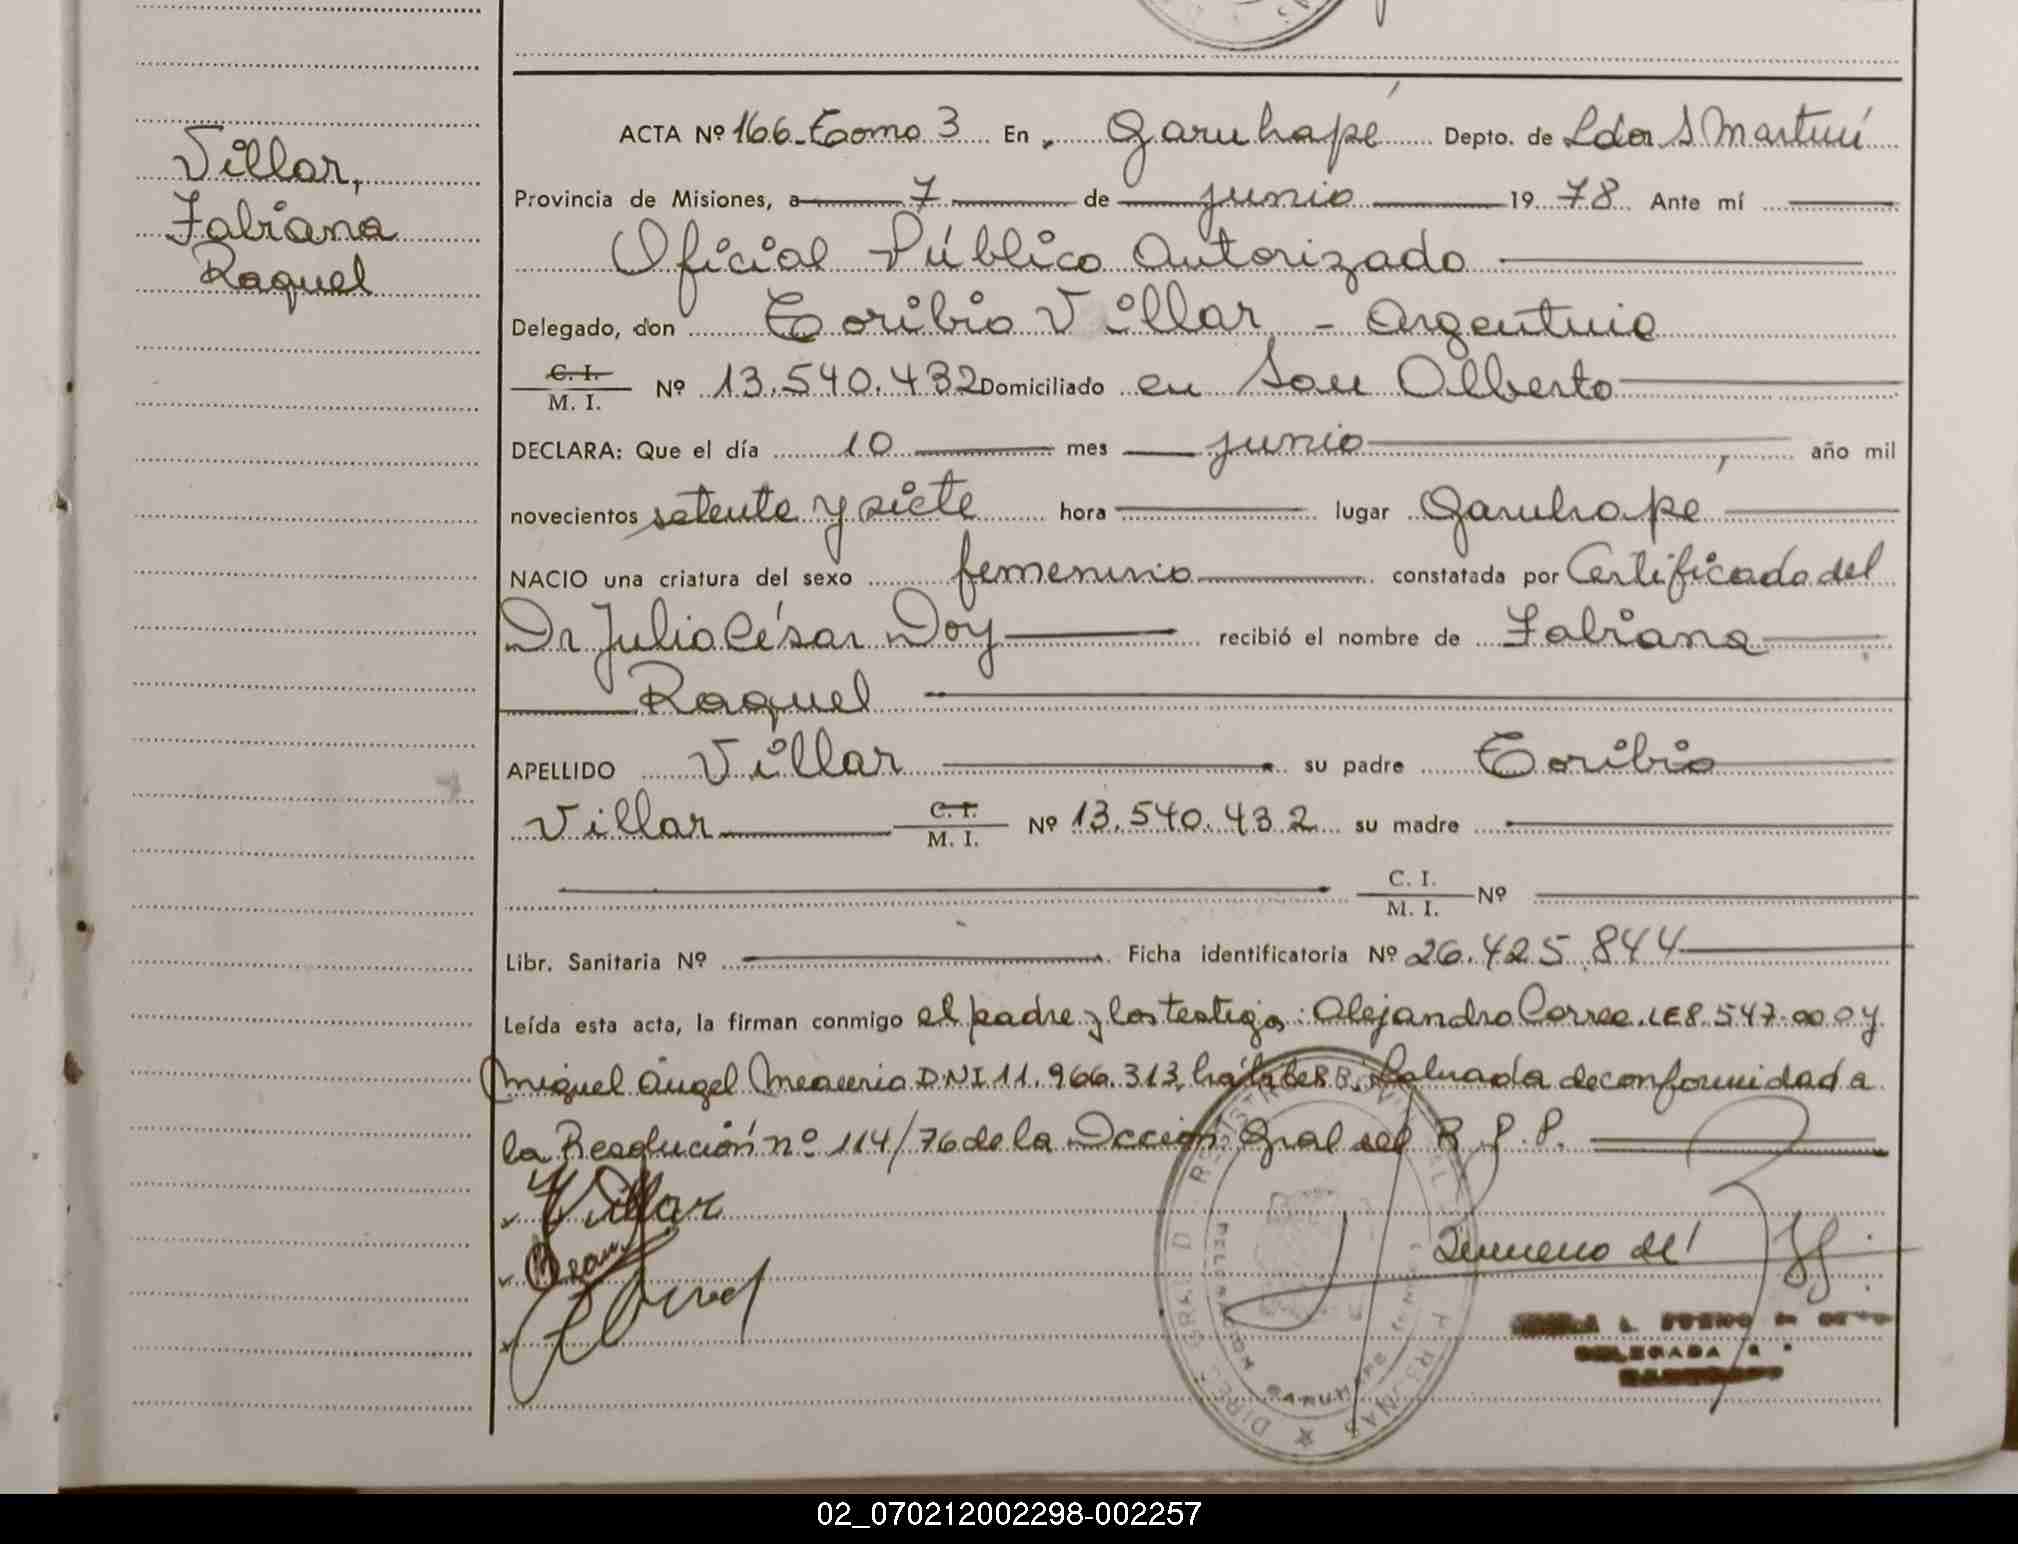 Villar,
Fabiana
Raquel
ACTA Nº 166 Tomo 3 En Garuhapé Depto. de Ldor S Martín
Provincia de Misiones, a 7 de junio 1978 Ante mí
Oficial Público Autorizado
Delegado, don Toribio Villar - Argentino
C. I. / M. I. Nº 13.540.432 Domiciliado en San Alberto
DECLARA: Que el día 10 mes junio, año mil
novecientos setenta y siete hora lugar Garuhapé
NACIO una criatura del sexo femenino constatada por Certificado del
Dr Julio César Doy recibió el nombre de Fabiana
Raquel
APELLIDO Villar su padre Toribio
Villar C. I. / M. I. Nº 13.540.432 su madre
C. I. / M. I. Nº
Libr. Sanitaria Nº Ficha identificatoria Nº 26.425.844
Leída esta acta, la firman conmigo el padre y los testigos: Alejandro Correa. LE 8.547.000 y
Miguel Angel DNI 11.966.313, hábiles. Labrada de conformidad a
la Resolución nº 114/76 de la Dccion Gral del R. P. P.
Villar
DELEGADA
GARUHAPE
02_070212002298-002257